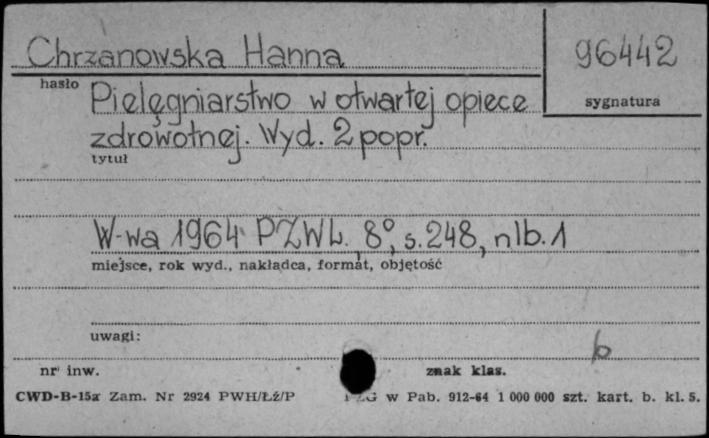 Chrzanowska Hanna
96442
hasło
sygnatura
Pielęgniarstwo w otwartej opiece
zdrowotnej. Wyd. 2 popr.
tytuł
W-wa 1964 PZWL, 8°, s. 248, nlb. 1
miejsce, rok wyd., nakładca, format, objętość
uwagi:
b
nr inw.
znak klas.
CWD-B-15a Zam. Nr 2924 PWH/Łź/P
w Pab. 912-64 1 000 000 szt. kart. b. kl. 5.